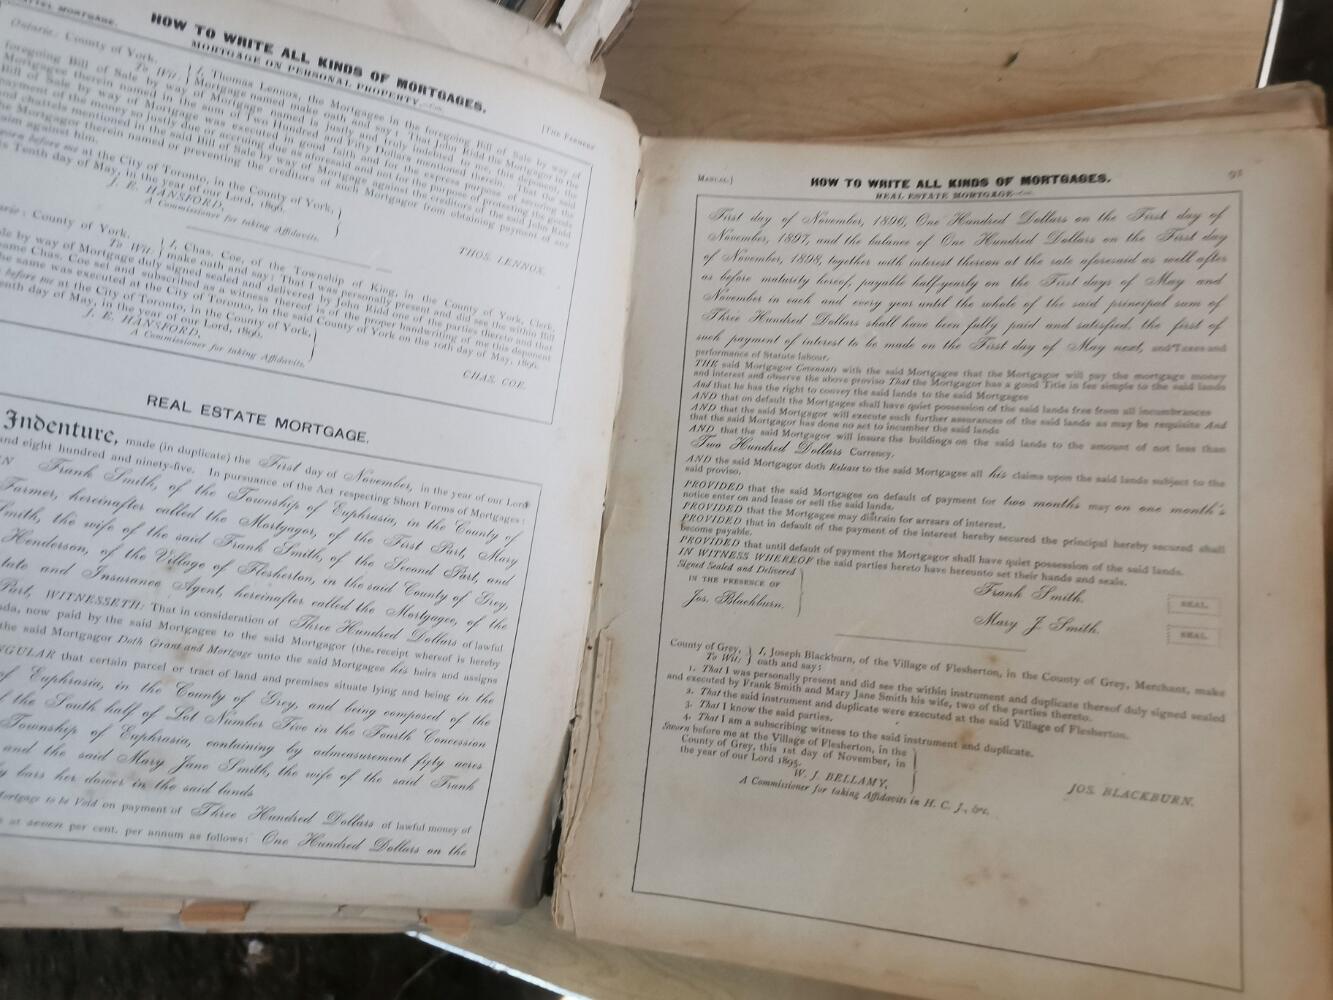 ATTEL MORTGAGE.
HOW TO WRITE ALL KINDS OF MORTGAGES.
MORTGAGE ON PERSONAL PROPERTY.
[THE FARMERS'
Ontario: County of York,
To Wit: } I, Thomas Lennox, the Mortgagee in the foregoing Bill of Sale by way of
Mortgage named make oath and say: That John Ridd the Mortgagor in the
foregoing Bill of Sale by way of Mortgage named is justly and truly indebted to me, this deponent, the
Mortgagee therein named in the sum of Two Hundred and Fifty Dollars mentioned therein. That the said
Bill of Sale by way of Mortgage was executed in good faith and for the express purpose of securing the
payment of the money so justly due or accruing due as aforesaid and not for the purpose of protecting the goods
and chattels mentioned in the said Bill of Sale by way of Mortgage against the creditors of the said John Ridd
the Mortgagor therein named or preventing the creditors of such Mortgagor from obtaining payment of any
claim against him.
before me at the City of Toronto, in the County of York,
is Tenth day of May, in the year of our Lord, 1896.
J. E. HANSFORD,
A Commissioner for taking Affidavits.
THOS. LENNOX.
County of York,
To Wit: } I, Chas. Coe, of the Township of King, in the County of York, Clerk,
make oath and say: That I was personally present and did see the within Bill
le by way of Mortgage duly signed sealed and delivered by Ridd one of the parties thereto and that
ame Chas. Coe set and subscribed as a witness thereto is of the proper handwriting of me this deponent
he same was executed at the City of Toronto, in the said County of York on the 10th day of May, 1896.
before me at the City of Toronto, in the County of York,
enth day of May, in the year of our Lord, 1896.
J. E. HANSFORD,
A Commissioner for taking Affidavits.
CHAS. COE.
REAL ESTATE MORTGAGE.
Indenture, made (in duplicate) the First day of November, in the year of our Lord
and eight hundred and ninety-five. In pursuance of the Act respecting Short Forms of Mortgages:
N Frank Smith, of the Township of Euphrasia, in the County of
Farmer, hereinafter called the Mortgagor, of the First Part, Mary
Smith, the wife of the said Frank Smith, of the Second Part, and
Henderson, of the Village of Flesherton, in the said County of Grey,
tate and Insurance Agent, hereinafter called the Mortgagee, of the
Part, WITNESSETH: That in consideration of Three Hundred Dollars of lawful
da, now paid by the said Mortgagee to the said Mortgagor (the receipt whereof is hereby
the said Mortgagor Doth Grant and Mortgage unto the said Mortgagee his heirs and assigns
NGULAR that certain parcel or tract of land and premises situate lying and being in the
of Euphrasia, in the County of Grey, and being composed of the
f the South half of Lot Number Five in the Fourth Concession
Township of Euphrasia, containing by admeasurement fifty acres
and the said Mary Jane Smith, the wife of the said Frank
y bars her dower in the said lands
Mortgage to be Void on payment of Three Hundred Dollars of lawful money of
at seven per cent. per annum as follows: One Hundred Dollars on the
MANUAL]
HOW TO WRITE ALL KINDS OF MORTGAGES.
REAL ESTATE MORTGAGE
First day of November, 1896, One Hundred Dollars on the First day of
November, 1897, and the balance of One Hundred Dollars on the First day
of November, 1898, together with interest thereon at the rate aforesaid as well after
as before maturity hereof, payable half-yearly on the First days of May and
November in each and every year until the whole of the said principal sum of
Three Hundred Dollars shall have been fully paid and satisfied, the first of
such payment of interest to be made on the First day of May next, and Taxes and
performance of Statute labour.
THE said Mortgagor Covenants with the said Mortgagee that the Mortgagor will pay the mortgage money
and interest and observe the above proviso That the Mortgagor has a good Title in fee simple to the said lands
And that he has the right to convey the said lands to the said Mortgagee
AND that on default the Mortgagee shall have quiet possession of the said lands free from all incumbrances
AND that the said Mortgagor will execute such further assurances of the said lands as may be requisite And
that the said Mortgagor has done no act to incumber the said lands
AND that the said Mortgagor will insure the buildings on the said lands to the amount of not less than
Two Hundred Dollars Currency.
AND the said Mortgagor doth Release to the said Mortgagee all his claims upon the said lands subject to the
said proviso.
PROVIDED that the said Mortgagee on default of payment for two months may on one month's
notice enter on and lease or sell the said lands.
PROVIDED that the Mortgagee may distrain for arrears of interest.
PROVIDED that in default of the payment of the interest hereby secured the principal hereby secured shall
become payable.
PROVIDED that until default of payment the Mortgagor shall have quiet possession of the said lands.
IN WITNESS WHEREOF the said parties hereto have hereunto set their hands and seals.
Signed Sealed and Delivered
IN THE PRESENCE OF
Jos. Blackburn.
Frank Smith. SEAL.
Mary J. Smith. SEAL.
County of Grey,
To Wit: } I, Joseph Blackburn, of the Village of Flesherton, in the County of Grey, Merchant, make
oath and say:
1. That I was personally present and did see the within instrument and duplicate thereof duly signed sealed
and executed by Frank Smith and Mary Jane Smith his wife, two of the parties thereto.
2. That the said instrument and duplicate were executed at the said Village of Flesherton.
3. That I know the said parties.
4. That I am a subscribing witness to the said instrument and duplicate.
Sworn before me at the Village of Flesherton, in the
County of Grey, this 1st day of November, in
the year of our Lord 1895.
W. J. BELLAMY,
A Commissioner for taking Affidavits in H. C. J., &c.
JOS. BLACKBURN.